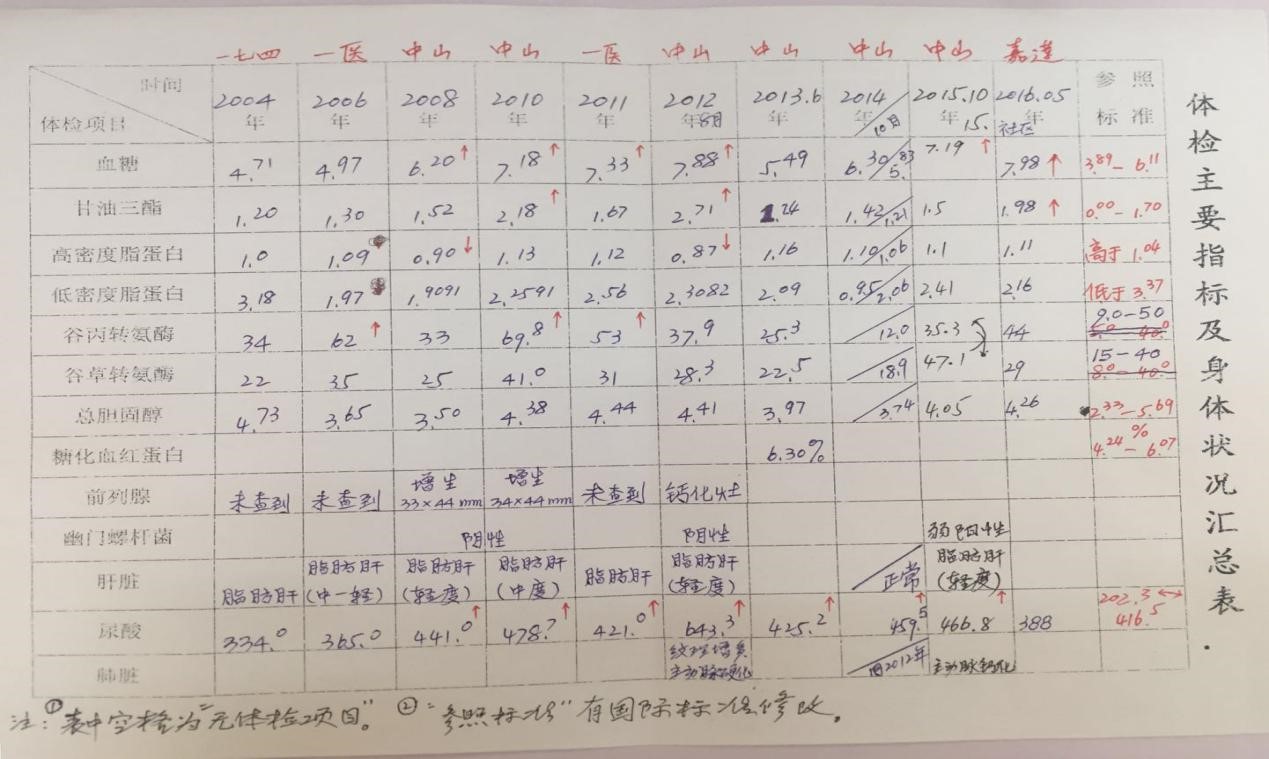 一七四 一医 中山 中山 一医 中山 中山 中山 中山 嘉达
时间 体检项目 2004年 2006年 2008年 2010年 2011年 2012年8月 2013.6 2014/10月 2015.10年15. 2016.05年社区 参照标准
血糖 4.71 4.97 6.20↑ 7.18↑ 7.33↑ 7.88↑ 5.49 6.30/5.83 7.19↑ 7.98↑ 3.89-6.11
甘油三酯 1.20 1.30 1.52 2.18↑ 1.67 2.71↑ 1.24 1.42/1.21 1.5 1.98↑ 0.00-1.70
高密度脂蛋白 1.0 1.09 0.90↓ 1.13 1.12 0.87↓ 1.16 1.10/1.06 1.1 1.11 高于1.04
低密度脂蛋白 3.18 1.97 1.9091 2.2591 2.56 2.3082 2.09 0.95/2.06 2.41 2.16 低于3.37
谷丙转氨酶 34 62↑ 33 69.8↑ 53↑ 37.9 25.3 /12.0 35.3 44 9.0-50 5.0-40.0
谷草转氨酶 22 35 25 41.0 31 28.3 22.5 /18.9 47.1 29 15-40 8.0-40.0
总胆固醇 4.73 3.65 3.50 4.38 4.44 4.41 3.97 /3.74 4.05 4.26 2.33-5.69
糖化血红蛋白 6.30% 4.24%-6.07
前列腺 未查到 未查到 增生33×44mm 增生34×44mm 未查到 钙化灶
幽门螺杆菌 阴性 阴性 弱阳性
肝脏 脂肪肝 脂肪肝(中-轻) 脂肪肝(轻度) 脂肪肝(中度) 脂肪肝 脂肪肝(轻度) /正常 脂肪肝(轻度)
尿酸 334.0 365.0 441.0↑ 478.7↑ 421.0↑ 643.3↑ 425.2↑ 459.5↑ 466.8↑ 388 202.3↔416.5
肺脏 纹理增多主动脉硬化 /同2012年 主动脉钙化
注:①表中空格为"无体检项目"。②"参照标准"有国际标准修改。
体检主要指标及身体状况汇总表.